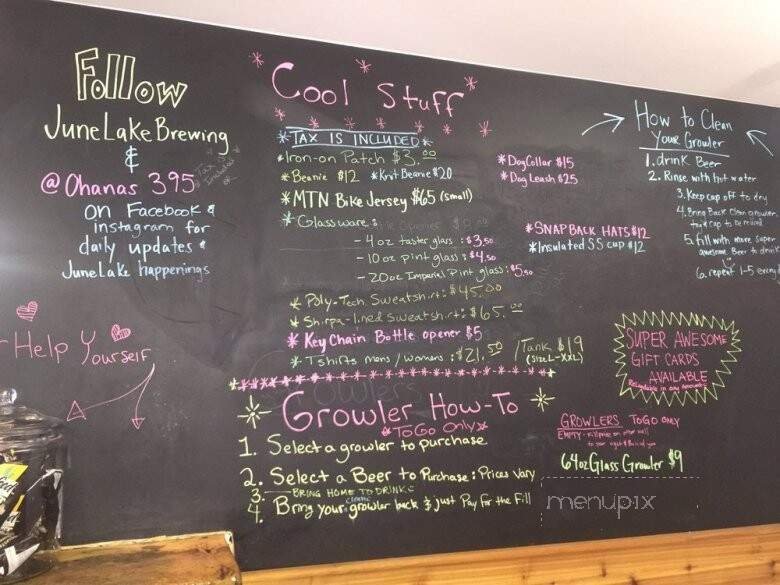 Follow
June Lake Brewing
&
@Ohanas 395
on Facebook &
instagram for
daily updates &
June Lake happenings
Help Yourself
Cool Stuff
*TAX IS INCLUDED*
*Iron-on Patch $3.00
*Beanie $12 *Knit Beanie $20
*MTN Bike Jersey $65 (small)
*Glassware:
- 4oz taster glass : $3.50
- 10 oz pint glass : $4.50
- 20oz Imperial Pint glass : $5.50
* Poly-Tech Sweatshirt : $45.00
* Shirpa-lined Sweatshirt : $65.00
* Key Chain Bottle opener $5
* Tshirts mens / womans : $21.50 / Tank $19
(Size L-XXL)
*Dog Collar $15
*Dog Leash $25
*SNAPBACK HATS $12
*Insulated SS cup $12
Growler How-To
*To Go Only*
1. Select a growler to purchase
2. Select a Beer to Purchase : Prices Vary
3. BRING HOME TO DRINK
4. Bring your clean growler back & just Pay for the Fill
How to Clean
Your Growler
1. drink Beer
2. Rinse with hot water
3. Keep cap off to dry
4. Bring Back Clean growler
and cap to be refilled
5. fill with more super
awesome Beer to drink
6. repeat 1-5 every
SUPER AWESOME
GIFT CARDS
AVAILABLE
GROWLERS TO GO ONLY
EMPTY - fill price on
64oz Glass Growler $9
menupix